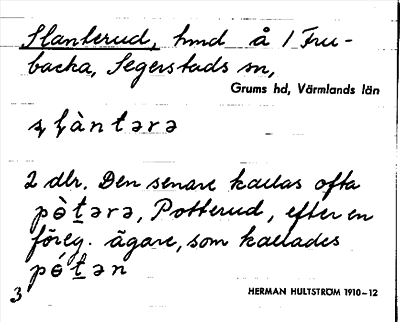 Slanterud, hmd å 1 Fru-
backa, Segerstads sn,
Grums hd, Värmlands län
ʂɭàntərə
2 dlr. Den senare kallas ofta
pò̤tərə, Potterud, efter en
föreg. ägare, som kallades
pó̤tən
3
HERMAN HULTSTRÖM 1910-12